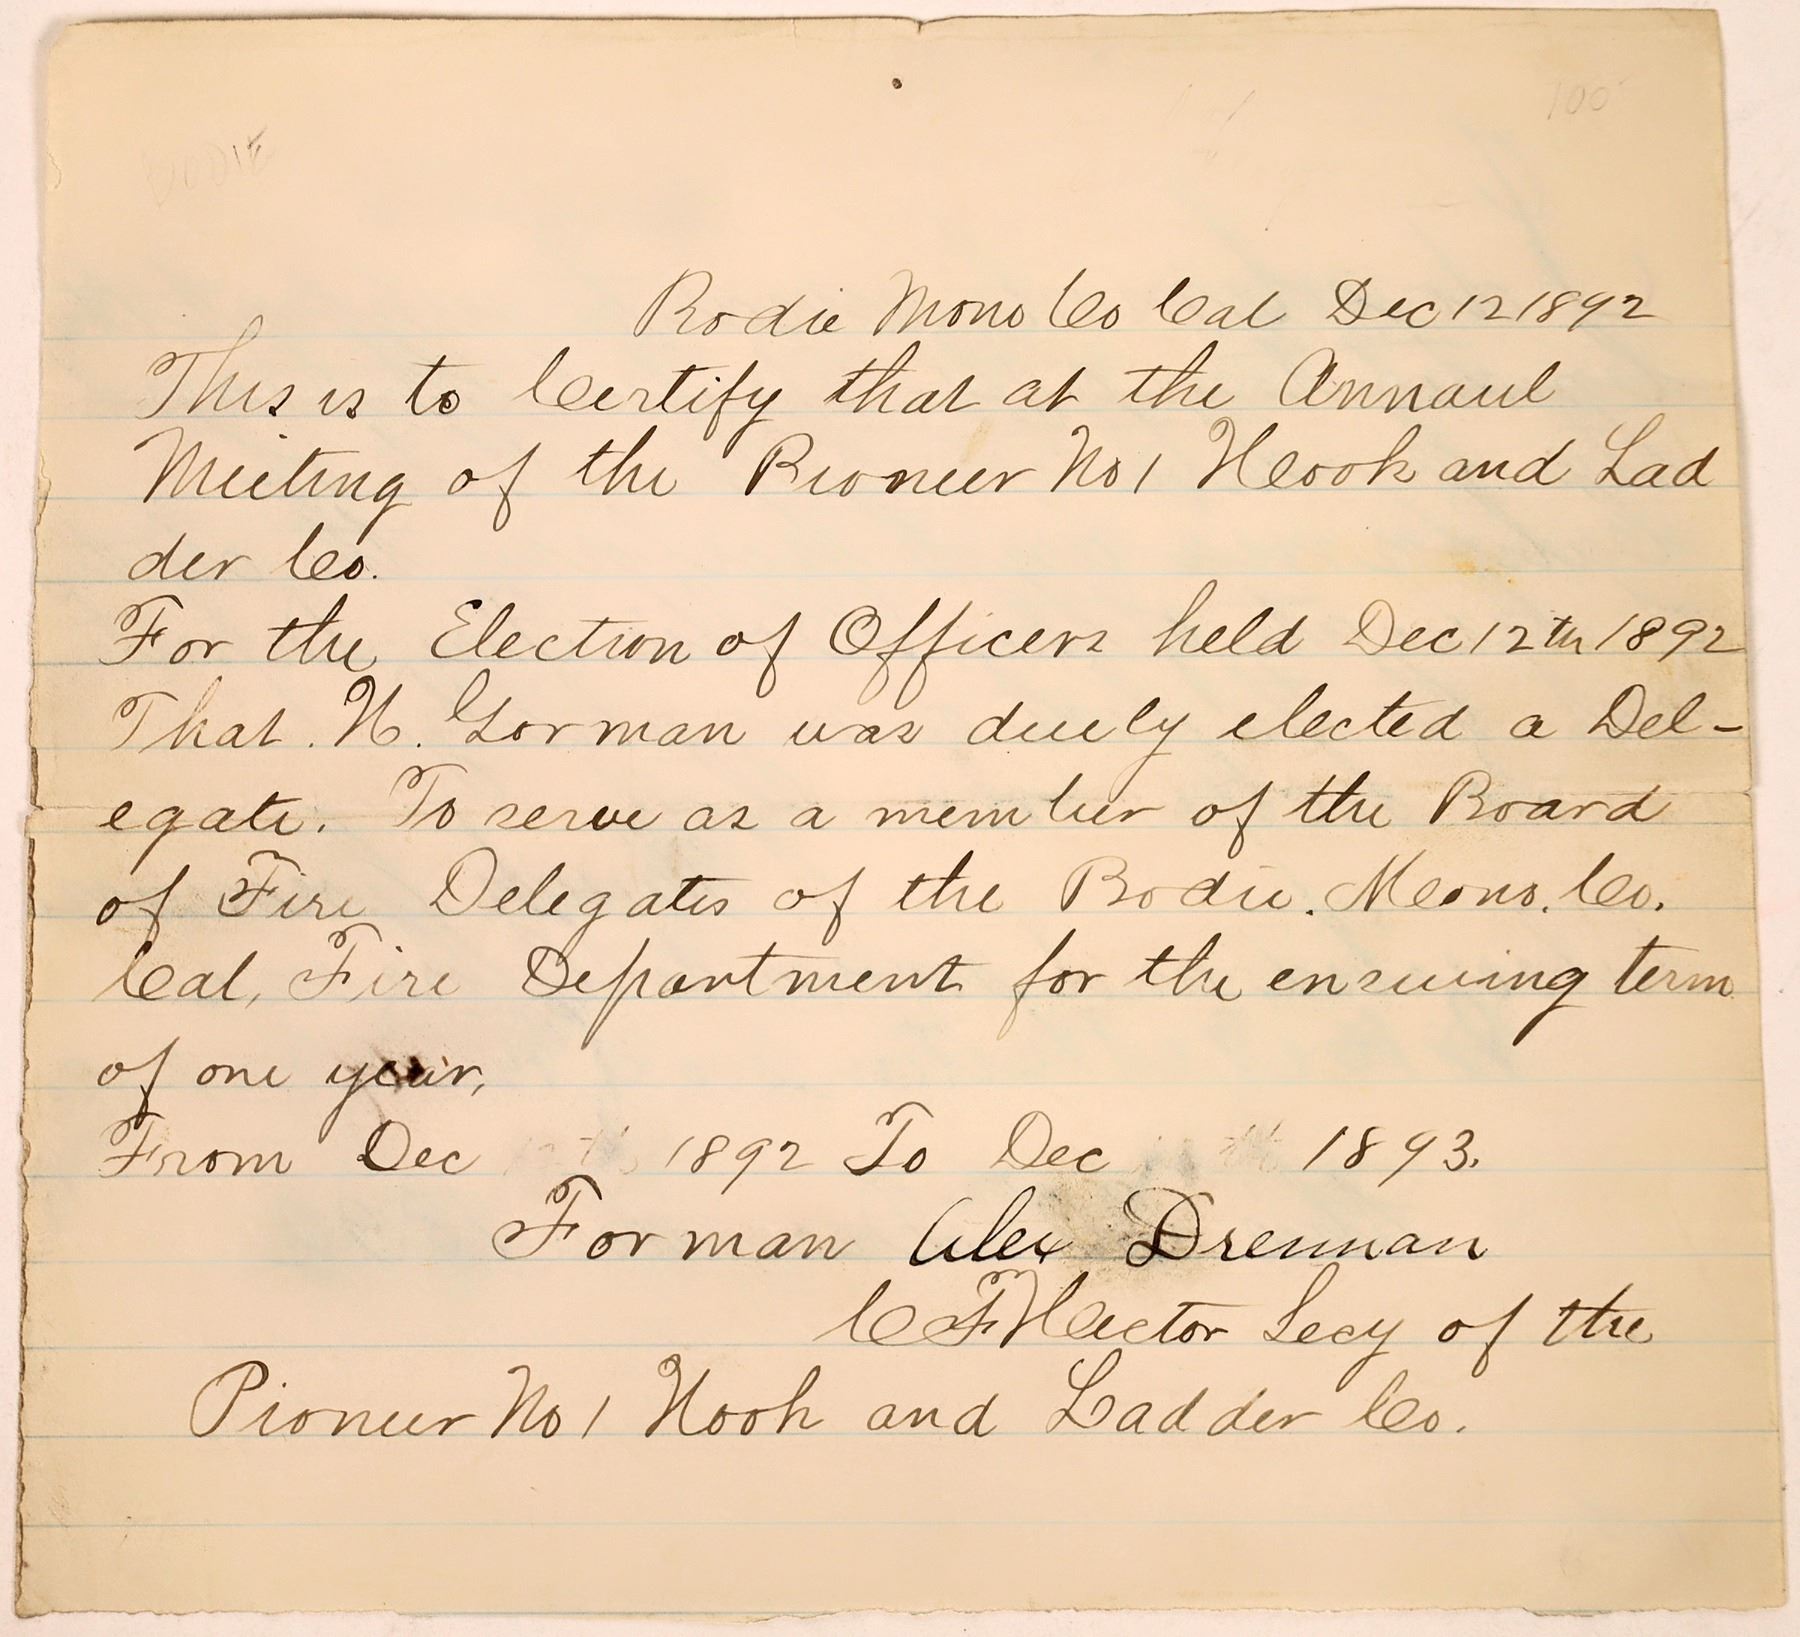 BODIE
100
Bodie Mono Co Cal Dec 12 1892
This is to Certify that at the Annaul
Meeting of the Pioneer No 1 Hook and Lad
der Co.
For the Election of Officers held Dec 12th 1892
That. H. Gorman was duely elected a Del-
egate. To serve as a member of the Board
of Fire Delegates of the Bodie. Mono. Co.
Cal, Fire Department for the ensuing term
of one year,
From Dec 1892 To Dec 1893.
Forman Alex Drennan
C F Hector Secy of the
Pioneer No 1 Hook and Ladder Co.